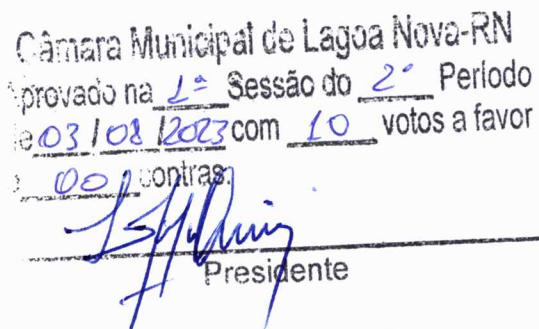 Câmara Municipal de Lagoa Nova-RN
provado na 1ª Sessão do 2º Período
e 03 / 08 / 2023 com 10 votos a favor
00 contras.
Presidente